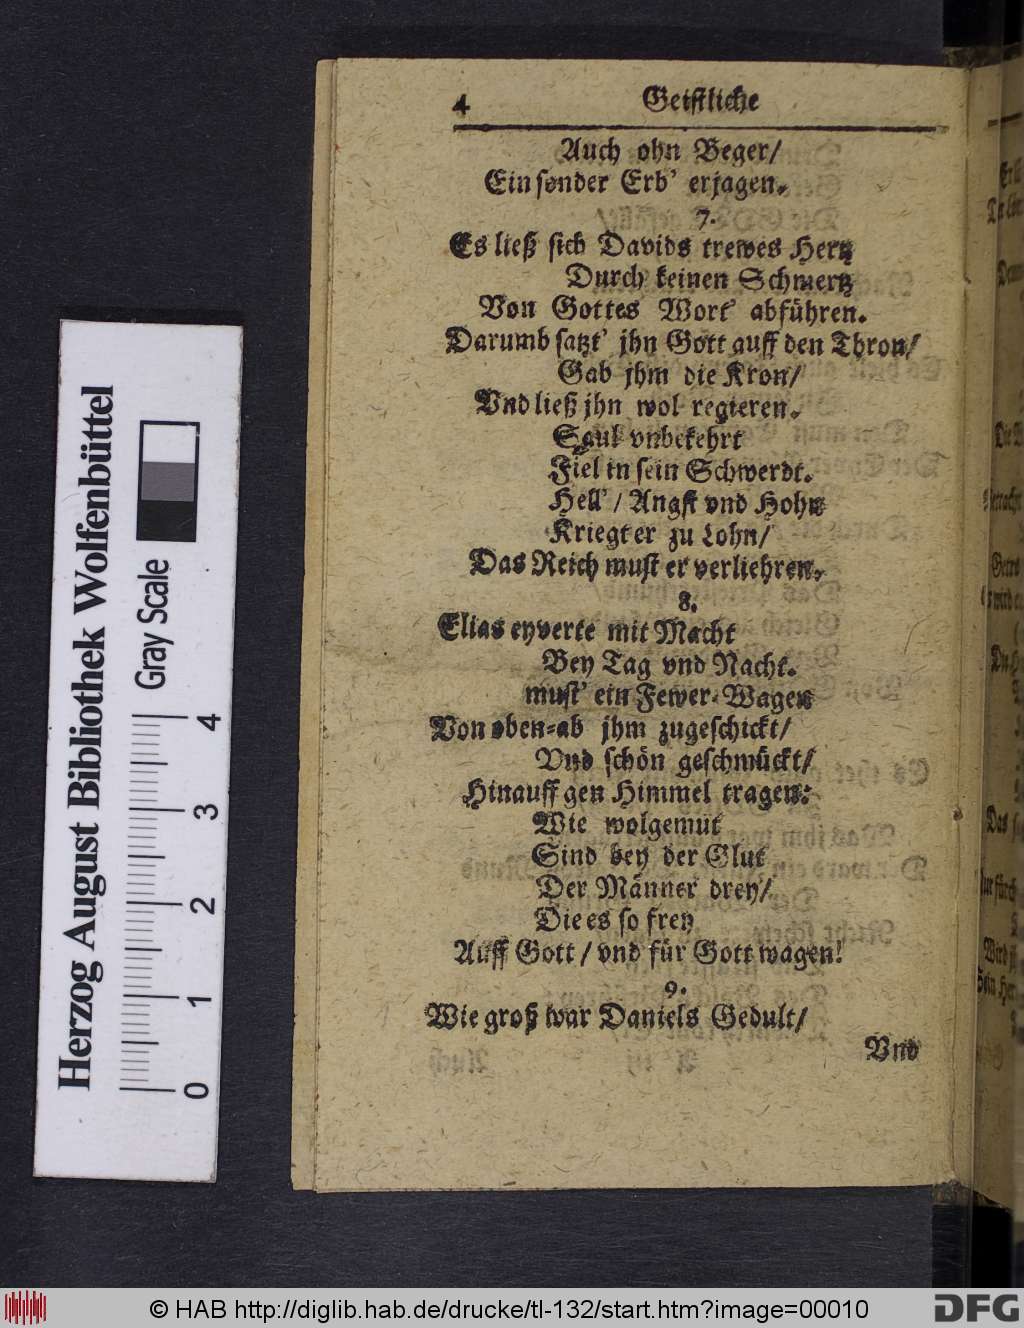 4 Geistliche
Auch ohn Beger/
Ein sonder Erb' erjagen.
7.
Es ließ sich Davids trewes Hertz
Durch keinen Schmertz
Von Gottes Wort' abführen.
Darumb satzt' jhn Gott auff den Thron/
Gab jhm die Kron/
Vnd ließ jhn wol regieren.
Saul vnbekehrt
Fiel in sein Schwerdt.
Hell'/ Angst vnd Hohn
Kriegt er zu Lohn/
Das Reich must er verliehren.
8.
Elias eyverte mit Macht
Bey Tag vnd Nacht.
must' ein Fewer-Wagen
Von oben-ab jhm zugeschickt/
Vnd schön geschmückt/
Hinauff gen Himmel tragen.
Wie wolgemut
Sind bey der Glut
Der Männer drey/
Die es so frey
Auff Gott/ vnd für Gott wagen!
9.
Wie groß war Daniels Gedult/
Vnd
Herzog August Bibliothek Wolfenbüttel
Gray Scale
0 1 2 3 4
© HAB http://diglib.hab.de/drucke/tl-132/start.htm?image=00010
DFG